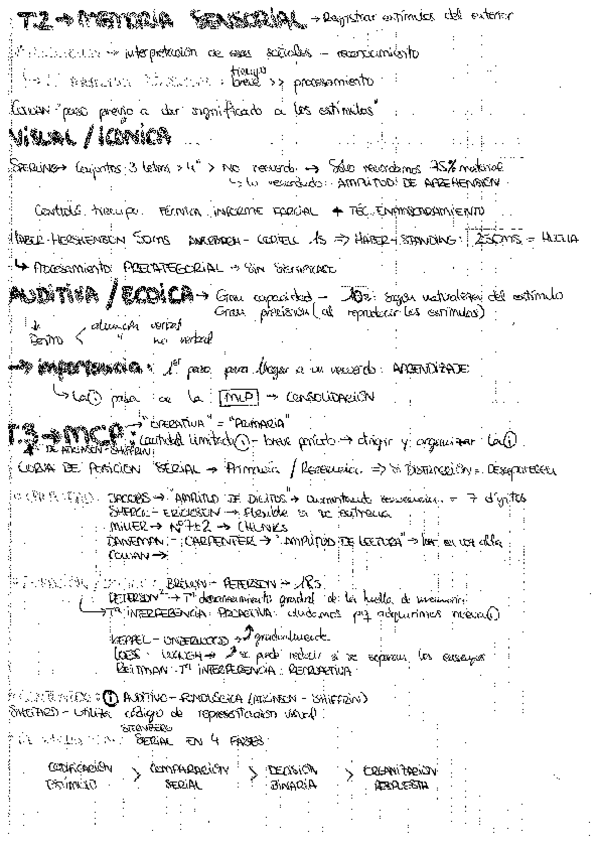 T.2 → MEMORIA SENSORIAL → Registrar estímulos del exterior
→ interpretación de esas señales - reconocimiento
tiempo
breve >> procesamiento
COWAN "paso previo a dar significado a los estímulos"
VISUAL / ICÓNICA
SPERLING → Conjuntos: 3 letras > 4" > NO recuerdo → Sólo recordamos 75% material
→ lo recordado: AMPLITUD DE APREHENSIÓN
Controló tiempo. TÉCNICA INFORME PARCIAL + TÉC. ENMASCARAMIENTO
HABER-HERSHENSON 50ms AVERBACH - CORIELL 1s => HABER y STANDING: 250MS = HUELLA
↳ Procesamiento PRECATEGORIAL → SIN SIGNIFICADO
AUDITIVA / ECOICA → Gran capacidad - 10s: según naturaleza del estímulo
Gran precisión (al reproducir los estímulos)
verbal
no verbal
→ importancia: 1er paso para llegar a un recuerdo: APRENDIZAJE
↳ La ⓘ pasa de la MCP → CONSOLIDACIÓN
→ "OPERATIVA" = "PRIMARIA"
T.3 → MCP: Cantidad limitada ⓘ - breve período → dirigir y organizar la ⓘ
↓ DE ATKINSON-SHIFFRIN
CURVA DE POSICIÓN SERIAL → Primacía / Recencia => Si DISTRACCIÓN = DESAPARECEN
JACOBS → "AMPLITUD DE DÍGITOS" → aumentando secuencia = 7 dígitos
ERICKSON → flexible si se entrena
MILLER → Nº7±2 → CHUNKS
DANEMAN - CARPENTER → "AMPLITUD DE LECTURA" → leer en voz alta
COWAN →
- BROWN - PETERSON → 18s
PETERSON² → Tª decaimiento gradual de la huella de memoria
→ Tª INTERFERENCIA PROACTIVA: olvidamos pq adquirimos nueva ⓘ
KEPPEL - UNDERWOOD → gradualmente
LOESS - WAUGH → se puede reducir si se separan los ensayos
REITMAN - Tª INTERFERENCIA RETROACTIVA
ⓘ AUDITIVO - FONOLÓGICA (ATKINSON - SHIFFRIN)
SHEPARD - utiliza código de representación visual
STERNBERG
SERIAL EN 4 FASES
CODIFICACIÓN > COMPARACIÓN > DECISIÓN > ORGANIZACIÓN
ESTÍMULO SERIAL BINARIA RESPUESTA